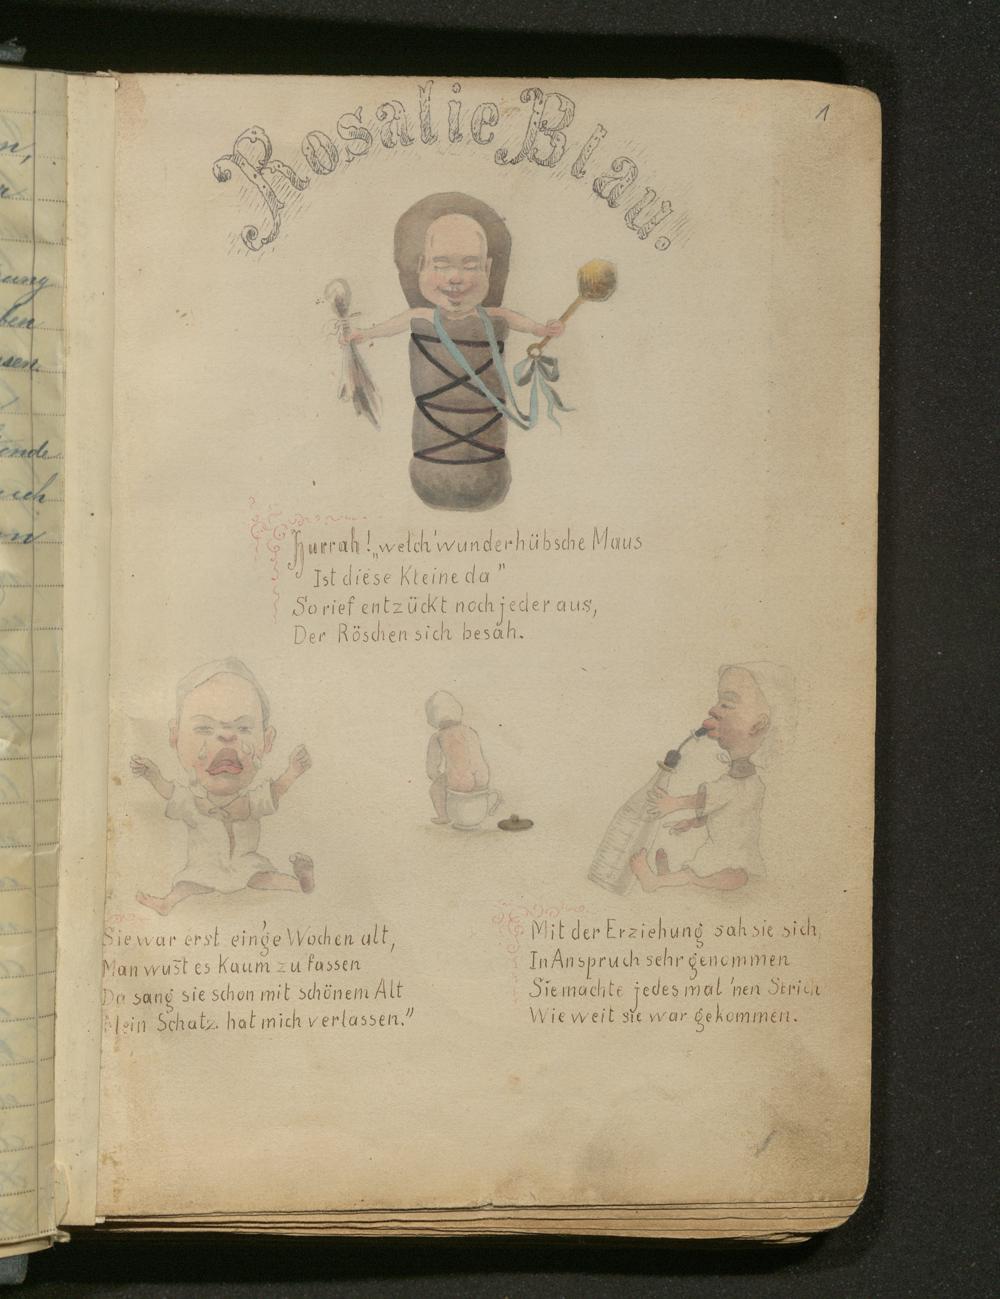 1
Rosalie Blau.
Hurrah! „welch' wunderhübsche Maus
Ist diese Kleine da"
So rief entzückt noch jeder aus,
Der Röschen sich besah.
Sie war erst ein'ge Wochen alt,
Man wußt es kaum zu fassen
Da sang sie schon mit schönem Alt
Mein Schatz hat mich verlassen."
Mit der Erziehung sah sie sich,
In Anspruch sehr genommen
Sie machte jedes mal 'nen Strich
Wie weit sie war gekommen.